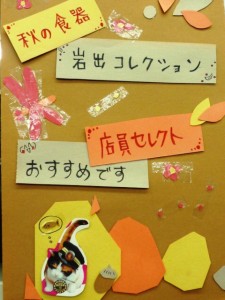 秋の食器
岩出コレクション
店員セレクト
おすすめです